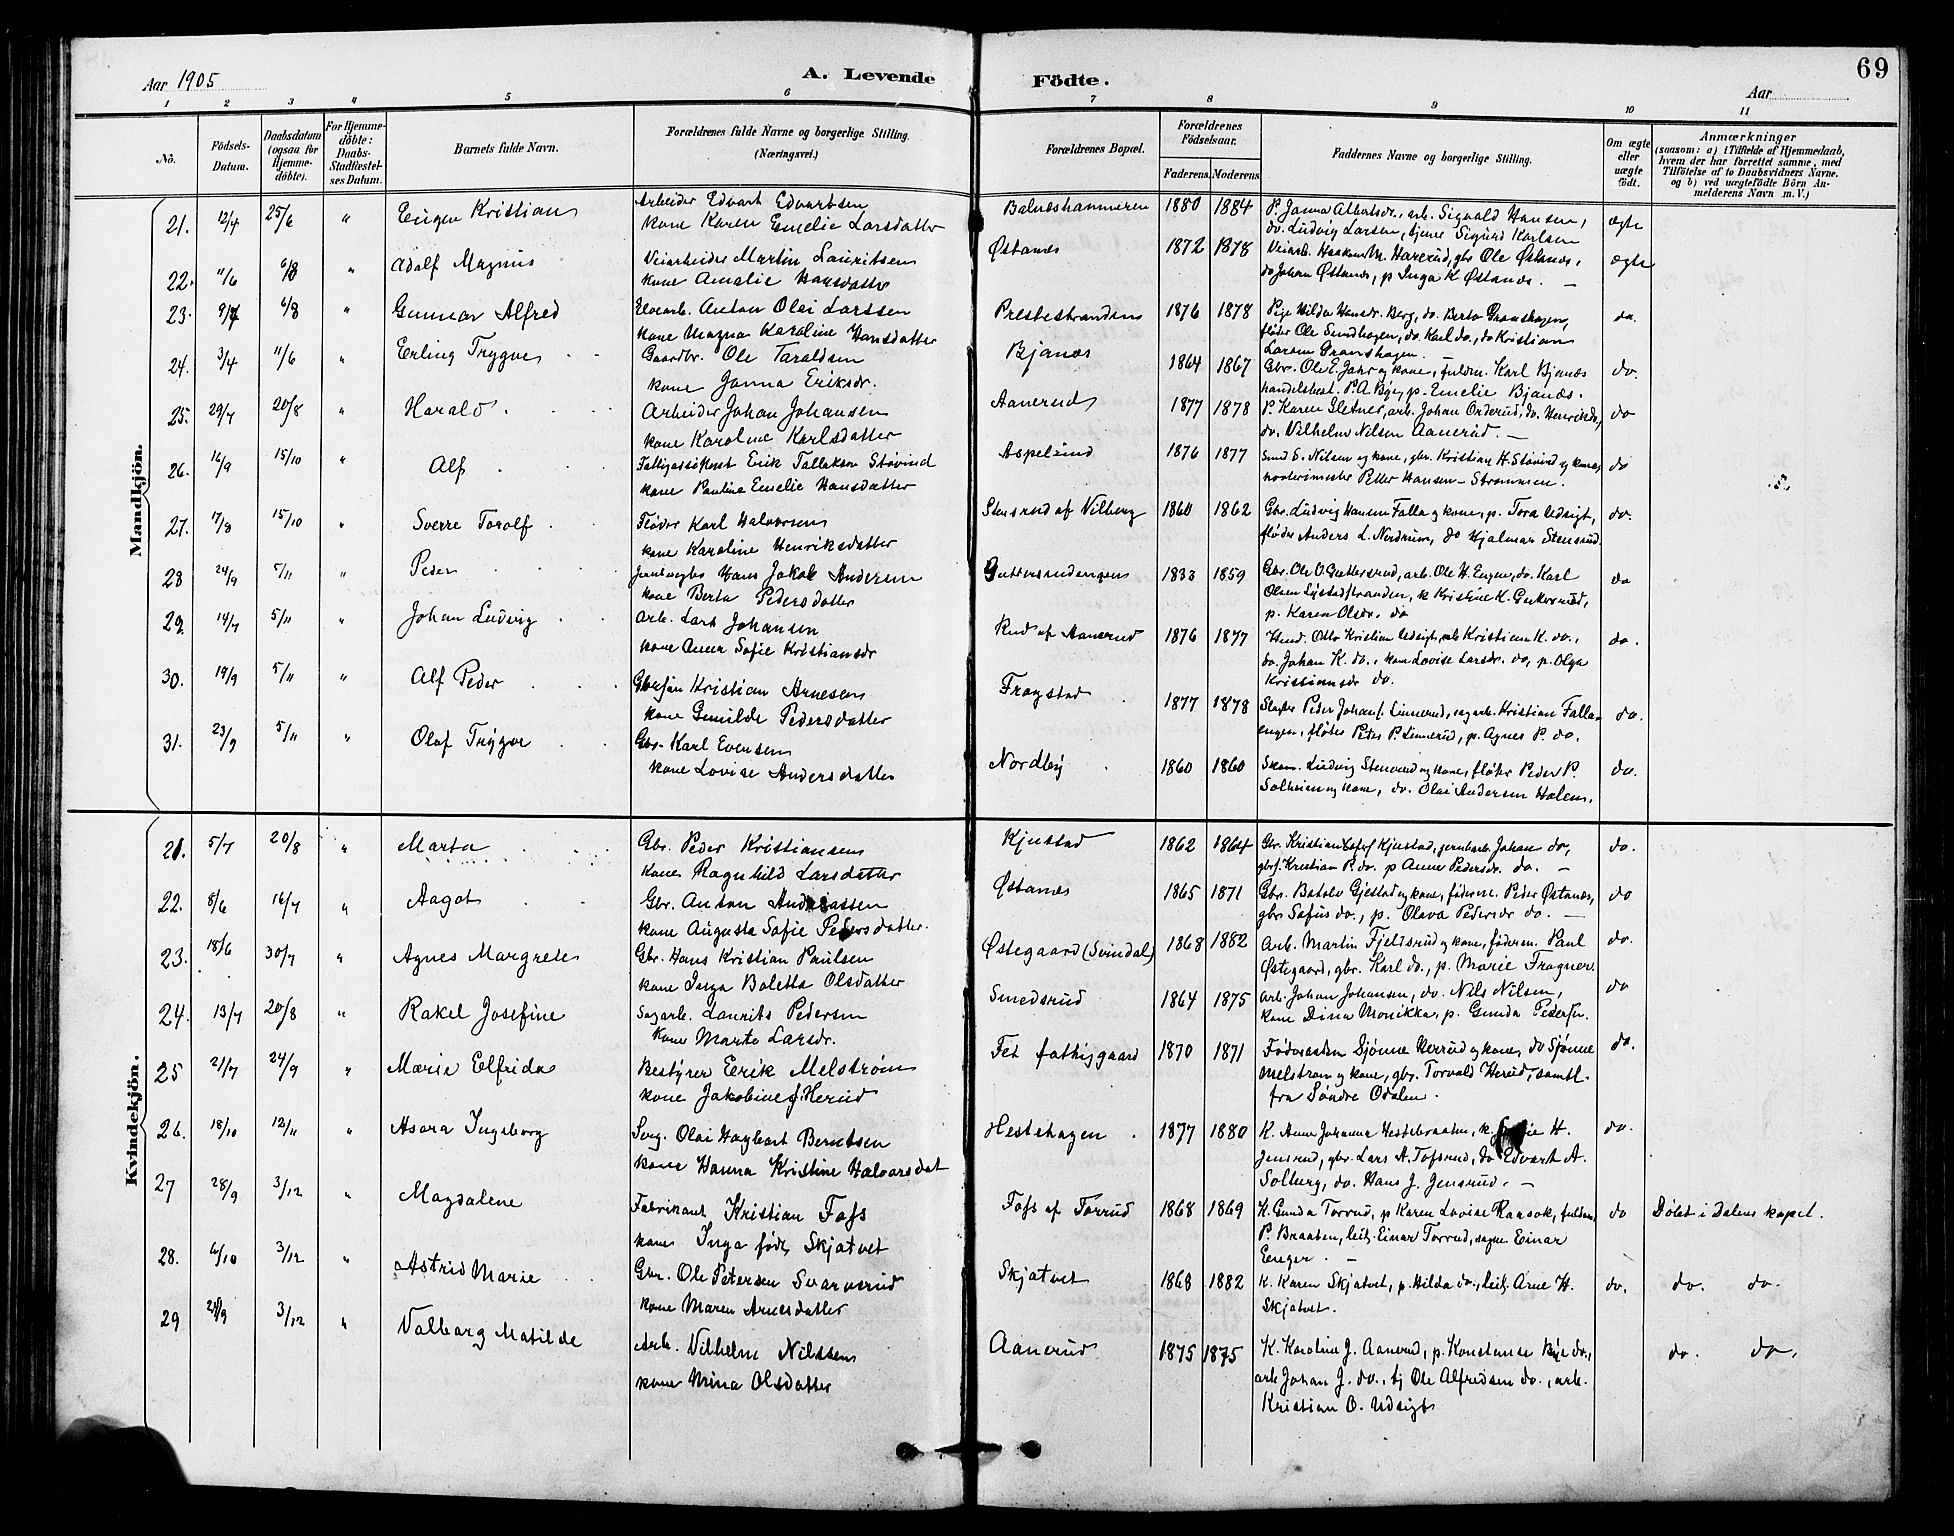 69
Aar 1905
A. Levende Födte.
Aar
1 2 3 4 5 6 7 8 9 10 11
No.
Födsels-Datum.
Daabsdatum (ogsaa for Hjemme-döbte).
For Hjemme-döbte: Daabs-Stadfæstel-ses Datum.
Barnets fulde Navn.
Forældrenes fulde Navne og borgerlige Stilling.
(Næringsvei.)
Forældrenes Bopæl.
Forældrenes Födselsaar.
Faderens. Moderens.
Faddernes Navne og borgerlige Stilling.
Om ægte eller uægte födt.
Anmærkninger
(saasom: a) i Tilfælde af Hjemmedaab, hvem der har forrettet samme, med Tilföielse af to Daabsvidners Navne. og b) ved uægtefödte Börn An-melderens Navn m. V.)
Mandkjön.
21. 12/4 25/6 " Eugen Kristian
Arbeider Edvart Edvartsen
kone Karen Emelie Larsdatter
Balnæshammeren 1880 1884
P. Janna Albertsdr., arb. Sigvald Hansen,
do. Ludvig Larsen, tjener Sigurd Karlsen
ægte
22. 11/6 6/8 " Adolf Magnus
Veiarbeider Martin Lauritsen
kone Amalie Hansdatter
Østanæs 1872 1878
Veiarb. Haakon M. Harerud, gbr Ole Østanæs,
do Johan Østanæs, p Inga K Østanæs. —
ægte
23. 9/7 6/8 " Gunnar Alfred
Elvearb. Anton Olai Larssen
kone Magna Karoline Hansdatter
Prestestranden 1876 1878
Pige Hilda Hansdr. Berg, do. Berta Granshagen,
fløter Ole Sundhagen, do. Karl do., do Kristian
Larsen Granshagen.
do.
24. 3/4 11/6 " Erling Trygve
Gaardbr. Ole Taraldsen
kone Janna Eriksdr.
Bjanæs 1864 1867
Gbr. Ole E. Jahr og kone, fuldm. Karl Bjanæs
handelsbest. P. A. Bye, p. Emelie Bjanæs.
do.
25. 29/7 20/8 " Harald
Arbeider Johan Johansen
kone Karoline Karlsdatter
Aanerud 1877 1878
P. Karen Sletner, arb. Johan Orderud, do. Henrik do.,
do. Vilhelm Nilsen Aanerud. —
do
26. 16/9 15/10 " Alf
Erik Tolleksen Støvind
kone Pauline Emelie Hansdatter
Aspelund 1876 1877
Smed E. Nilsen og kone, gbr. Kristian H. Støvind og kone,
Petter Hansen - Strømmen.
do
27. 17/8 15/10 " Sverre Torolf
Fløder Karl Halvorsen
kone Karoline Henriksdatter
Stensrud af Nilberg 1860 1862
Gbr. Ludvig Hansen Falla og kone, p. Tora Udsigt,
fløder Anders L. Nordrum, do Hjalmar Stensrud.
do.
28 24/9 5/11 " Peder
Hans Jakob Andersen
kone Berta Pedersdatter
Guttersrudengen 1833 1859
Gbr. Ole O. Guttersrud, arb. Ole H. Engen, do. Karl
Olsen Lystadstranden, k Kristine K. Guttersrud,
p. Karen Olsdr. do
do
29. 14/7 5/11 " Johan Ludvig
Arb. Lars Johansen
kone Anna Sofie Kristiansdr
Rud af Aanerud 1876 1877
Otto Kristian Udsigt, arb Kristian K. do.,
do. Johan K. do., kone Lovise Larsdr. do, p. Olga
Kristiansdr do.
do.
30. 19/9 5/11 " Alf Peder
Kristian Arnesen
kone Gunilde Pedersdatter
Fragstad 1877 1878
Slagter Peder Johans. Linnerud, sagarb. Kristian Falla-
engen, fløter Peter P. Linnerud, p. Agnes P. do.
do.
31. 23/9 5/11 " Olaf Trygve
Gbr. Karl Evensen
kone Lovise Andersdatter
Nordby 1860 1860
Skom. Ludvig Stensrud og kone, fløter Peder P.
Solheim og kone, do. Olai Andersen Holen.
do.
Kvindekjön.
21. 5/7 20/8 " Marta
Gbr. Peder Kristiansen
kone Ragnhild Larsdatter
Kjustad 1862 1864
Gbr. Kristian Kjustad, jernbarb. Johan do,
gbrs. Kristian P. do. p Anne Pedersdr. do. —
do.
22. 8/6 16/7 " Aagot
Gbr. Anton Andreassen
kone Augusta Sofie Pedersdatter.
Østanæs 1865 1871
Gbr. Botolv Gjestad og kone, føderm. Peder Østanæs,
gbr Sofius do., p. Olava Pedersdr do. —
do
23. 18/6 30/7 " Agnes Margrete
Gbr. Hans Kristian Paulsen
kone Inga Boletta Olsdatter
Østegaard (Svindal) 1868 1882
Arb. Martin Fjeldsrud og kone, føderm. Paul
Østegaard, gbr. Karl do., p. Marie Fragner.
do.
24. 13/7 20/8 " Rakel Josefine
Sagarb. Laurits Pedersen
kone Marte Larsdr.
Smedsrud 1864 1875
arb. Johan Johansen, do. Nils Nilsen,
kone Dina Monikka, p. Gunda Peders.
do
25 21/7 24/9 " Marie Elfrida
Bestyrer Eerik Melstrøm
kone Jakobine f. Herud
Fet fattiggaard 1870 1871
Føderaadsm Sjønne Herrud og kone, do Sjønne
Melstrøm og kone, gbr. Torvald Herud, samtl.
fra Søndre Odalen.
do.
26. 18/10 12/11 " Asora Ingeborg
Serg. Olai Hagbart Berntsen
kone Hanna Kristine Halvorsdat
Hestehagen. 1877 1880
K. Anne Johanna Hestebraaten, k. H.
Jensrud, gbr. Lars A. Tofsrud, do Edvart A.
Solberg, do. Hans J. Jensrud. —
do.
27 28/9 3/12 " Magdalene
Fabrikant Kristian Fofs
kone Inga født Skjatvet
Fofs af Torrud 1868 1869
K. Gunda Torrud, p Karen Lovise Ramsok, fuldm.
P. Braaten, leilj. Einar Torrud, sagm Einar
Enger. —
do
Døbt i Dalens kapel.
28. 6/10 3/12 " Astrid Marie
Gbr. Ole Petersen Svarverud
kone Maren Arnesdatter
Skjatvet 1868 1882
K. Karen Skjatvet, p. Hilda do., leilj. Arne H.
Skjatvet.
do. do. do.
29 28/9 3/12 " Valborg Matilde
Arb. Vilhelm Nilssen
kone Mina Olsdatter
Aanerud 1875 1875
K. Karoline J. Aanerud, p. Konstanse Bye do.,
arb Johan J. do., tj Ole Alfredsen do., arb.
Kristian O. Udsigt
do. do.